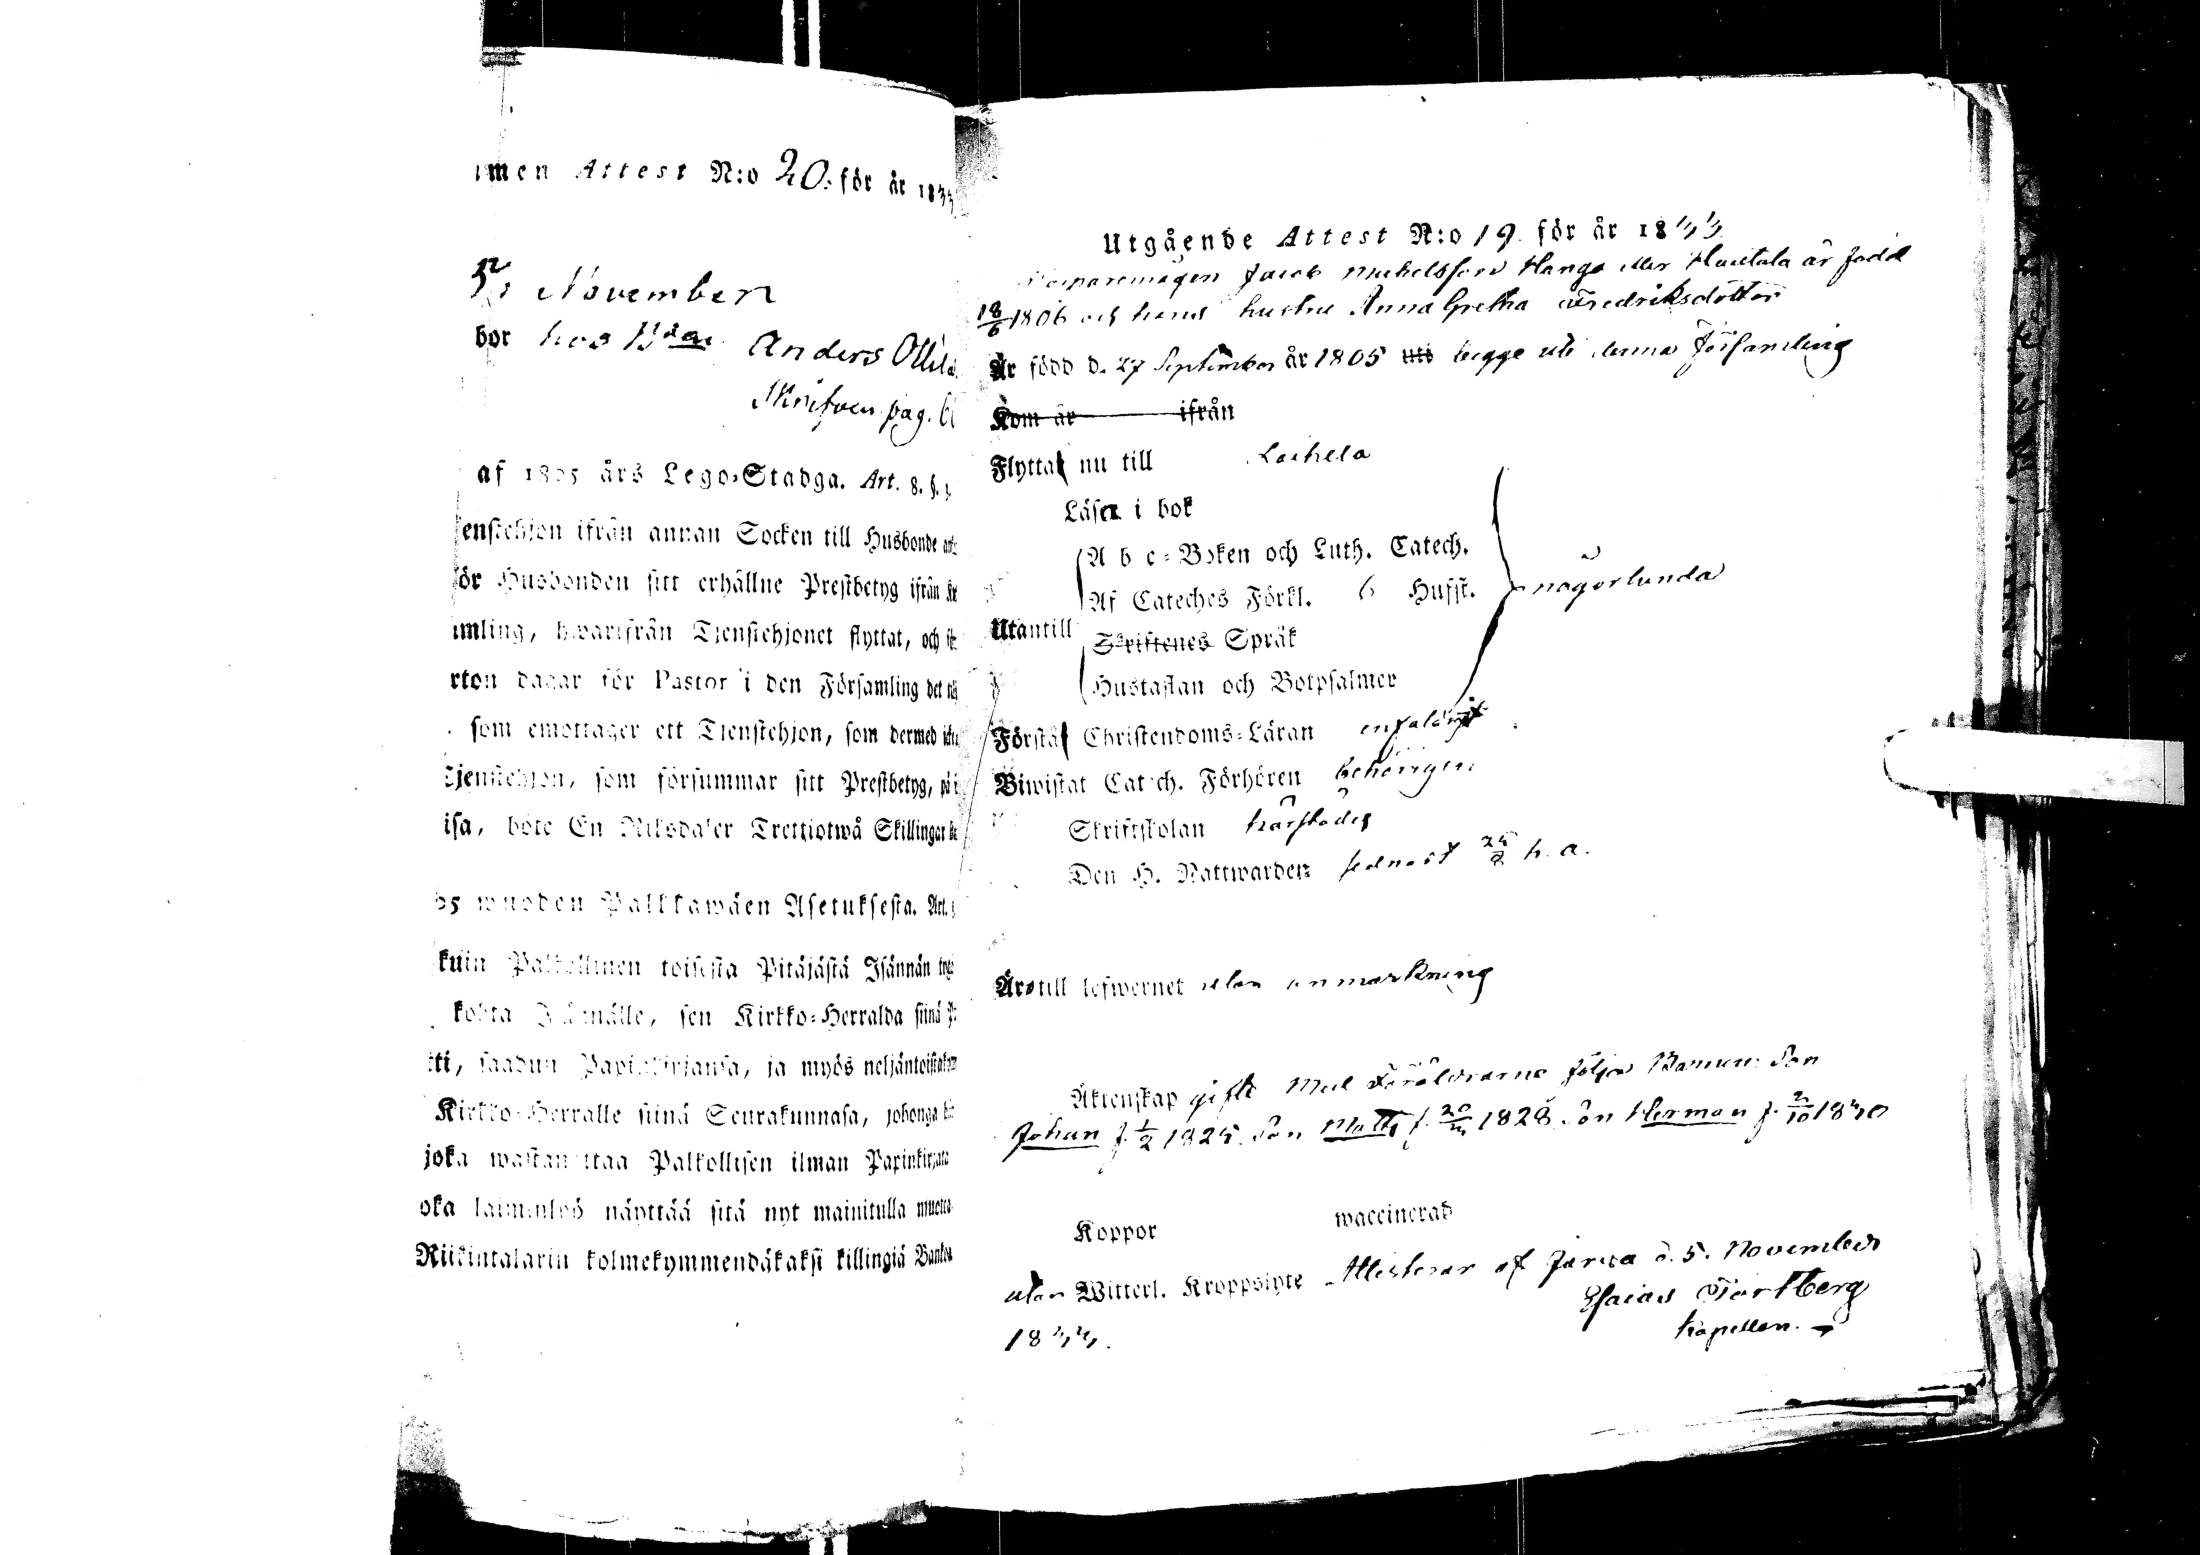 men Attest N:o 20. för år 1844
November
bor hos Bden Anders Ollila
Skrifven pag.
af 1805 års Lego-Stadga. Art. 8. §.
enstehjon ifrån annan Socken till Husbonde
ör Husbonden sitt erhållne Prestbetyg ifrån
mling, hwarifrån Tjenstehjonet flyttat, och
rton dagar för Pastor i den Församling det
som emottager ett Tjenstehjon, som dermed
Tjenstehjon, som försummar sitt Prestbetyg, på
isa, böte En Riksdaler Trettiotwå Skillingar
05 wuoden Palkkawäen Asetuksesta. Art.
kuin Palkollinen toisesta Pitäjästä Isännän
kohta Isännälle, sen Kirkko-Herralda siinä
tti, saadun Papinkirjansa, ja myös neljäntoista
Kirkko-Herralle siinä Seurakunnasa, johonga
joka wastan ottaa Palkollisen ilman Papinkirjata
oka laiminlyö näyttää sitä nyt mainitulla
Riikintalarin kolmekymmendäkaksi killingiä Banko
Utgående Attest N:o 19. för år 1844
Jacob Michelsson Hanga eller Hautala är född
18/6 1806 och hans hustru Anna Gretha Fredriksdotter
Är född d. 27 September år 1805 uti begge uti denna Församling
Kom år ifrån
Flytta nu till Laihela
Läsa i bok
A b c-Boken och Luth. Catech.
Af Cateches Förkl. 6 Hufst. någorlunda
Utantill
Skriftenes Språk
Hustaflan och Botpsalmer
Förstå Christendoms-Läran enfaldigt
Biwistat Catech. Förhören behörigen
Skriftskolan härstädes
Den H. Nattwarden sednast h. a.
Äro till lefwernet utan anmärkning
Äktenskap gifte Med Föräldrarne följer Barnen: Son
Johan f. 1/2 1825. Son Matts f. 1828. Son Herman f. 2/10 1840
Koppor waccinerad
utan Witterl. Kroppslyte Attesterar af d. 5. November
Esaias
Kapellan.
1844.